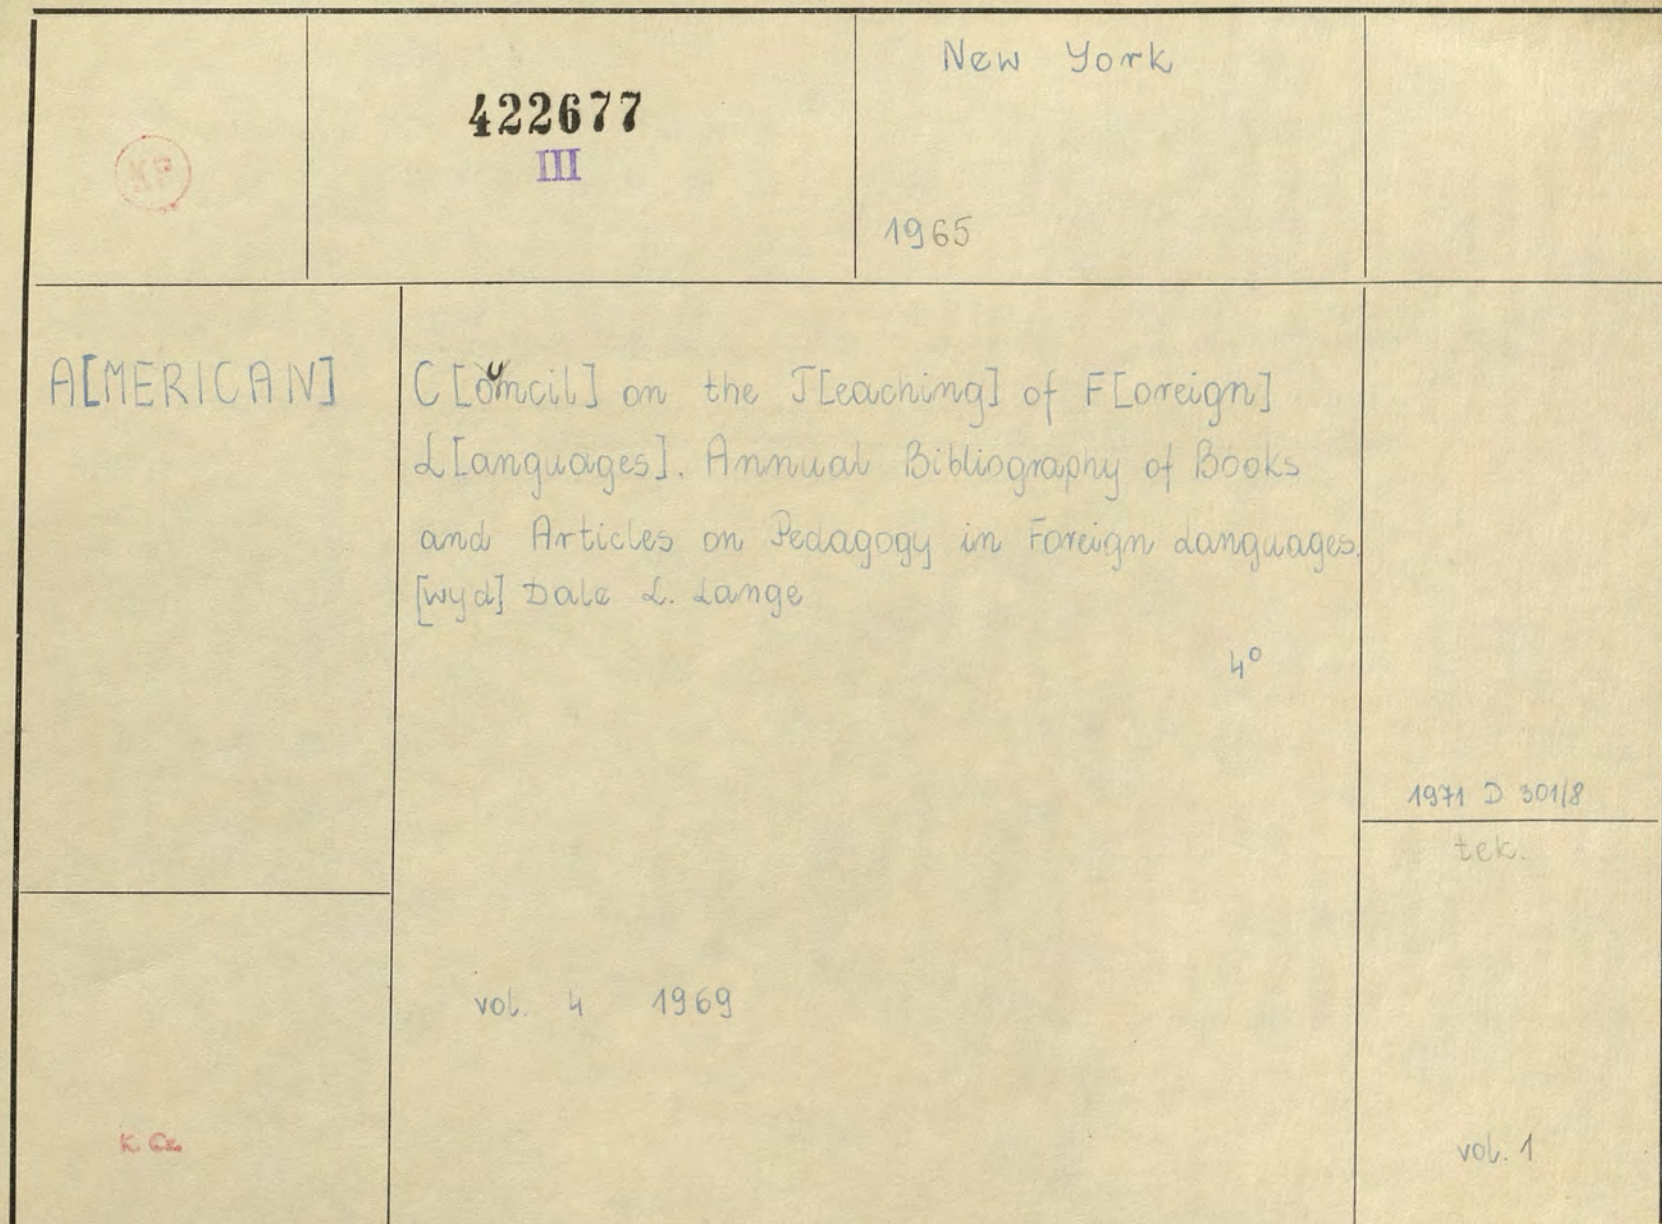 New York
422677
III
KP
1965
A[MERICAN] C[ouncil] on the T[eaching] of F[oreign]
L[anguages]. Annual Bibliography of Books
and Articles on Pedagogy in Foreign Languages.
[wyd] Dale L. Lange
4°
1971 D 301/8
tek.
vol. 4 1969
K. Cz.
vol. 1